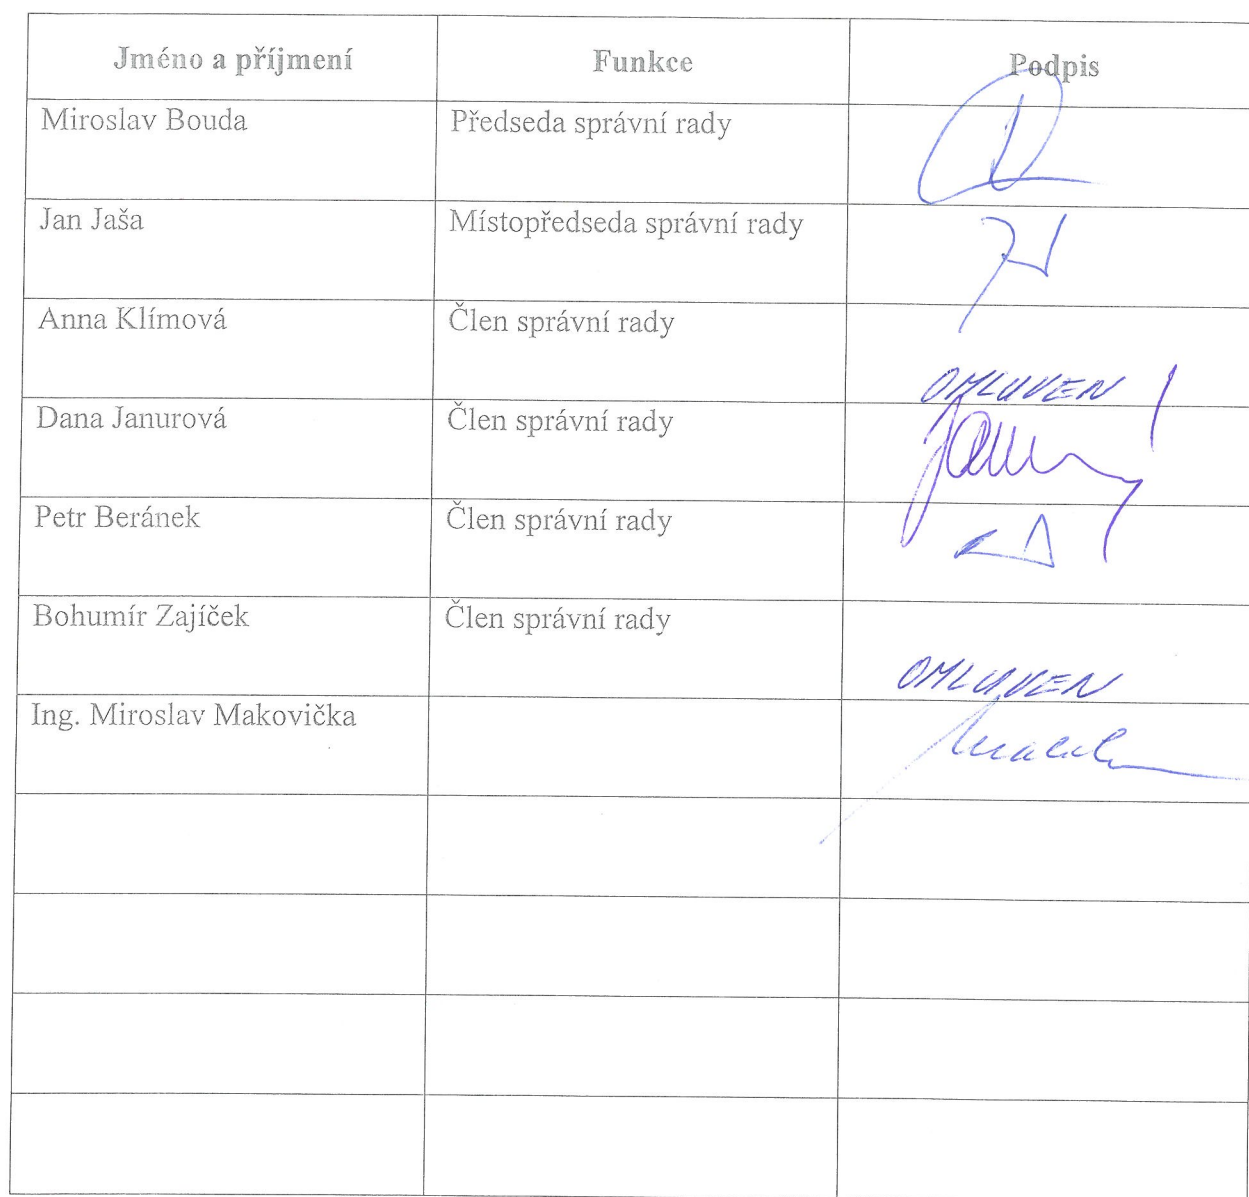 Jméno a příjmení Funkce Podpis
Miroslav Bouda Předseda správní rady
Jan Jaša Místopředseda správní rady
Anna Klímová Člen správní rady
OMLUVEN
Dana Janurová Člen správní rady
Petr Beránek Člen správní rady
Bohumír Zajíček Člen správní rady
OMLUVEN
Ing. Miroslav Makovička